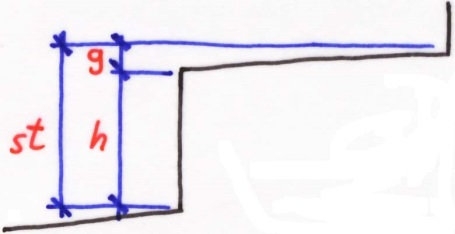 g
st h